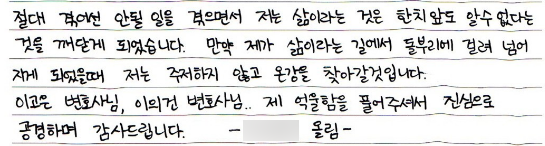 절대 겪어선 안될 일을 겪으면서 저는 삶이라는 것은 한치 앞도 알수 없다는
것을 깨닫게 되었습니다. 만약 제가 삶이라는 길에서 돌부리에 걸려 넘어
지게 되었을때 저는 주저하지 않고 온강을 찾아갈것입니다.
이고은 변호사님, 이의건 변호사님.. 제 억울함을 풀어주셔서 진심으로
공경하며 감사드립니다. - 올림 -